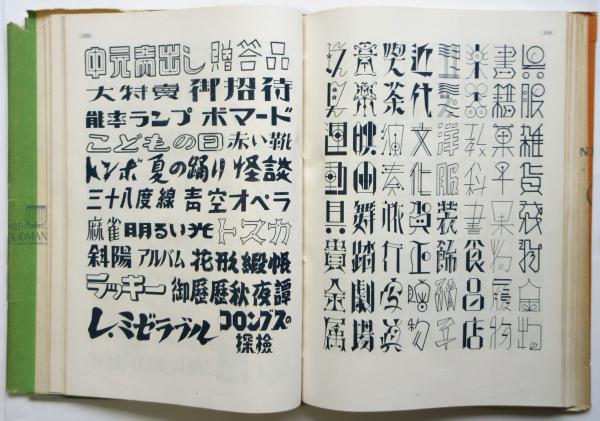 (168)
呉服雑貨
書籍菓子果物履物
楽器教科書食品店
洋服装飾
近代文化賀正贈物
喫茶演奏旅行写真
映画舞踏劇場
運動具貴金属
中元売出し 贈答品
大特売 御招待
能率ランプ ポマード
こどもの日 赤い靴
トンボ 夏の踊り 怪談
三十八度線 青空オペラ
麻雀 明るい光 トスカ
斜陽 アルバム 花形 緞帳
ラッキー 御歴歴 秋夜譚
レ・ミゼラブル コロンブスの
探検